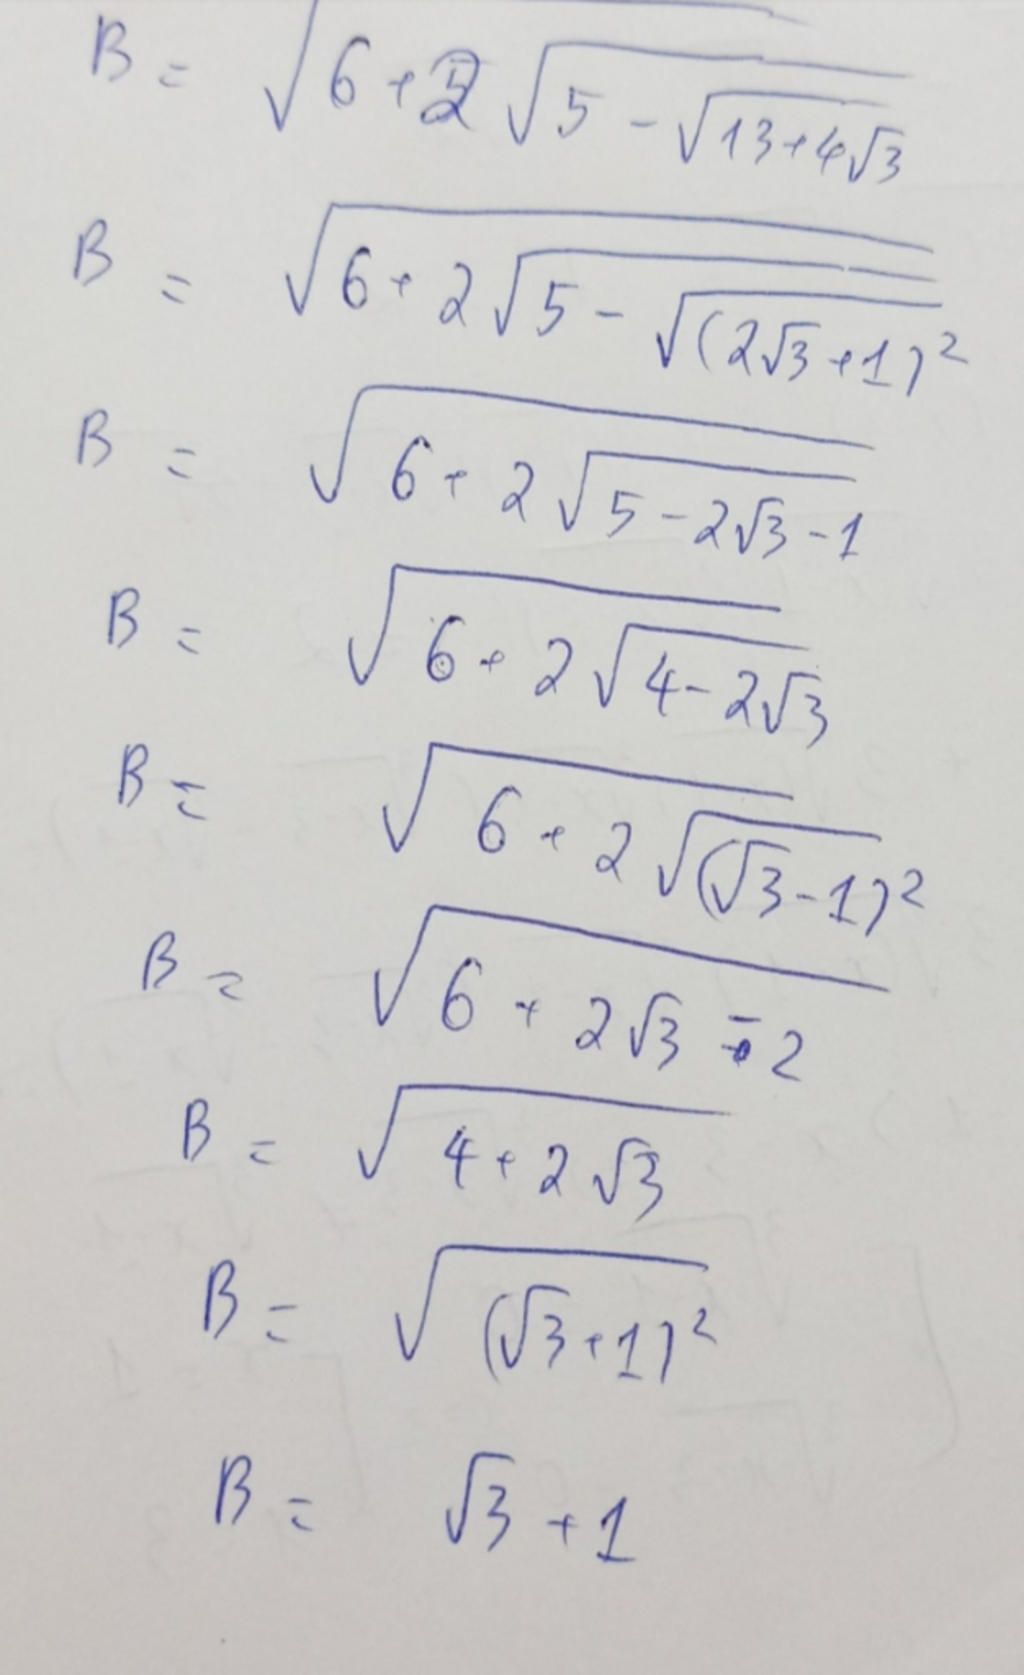 B = √(6+2√(5-√(13+4√3)))
B = √(6+2√(5-√((2√3+1)²)))
B = √(6+2√(5-2√3-1))
B = √(6+2√(4-2√3))
B = √(6+2√((√3-1)²))
B = √(6+2√3-2)
B = √(4+2√3)
B = √((√3+1)²)
B = √3+1